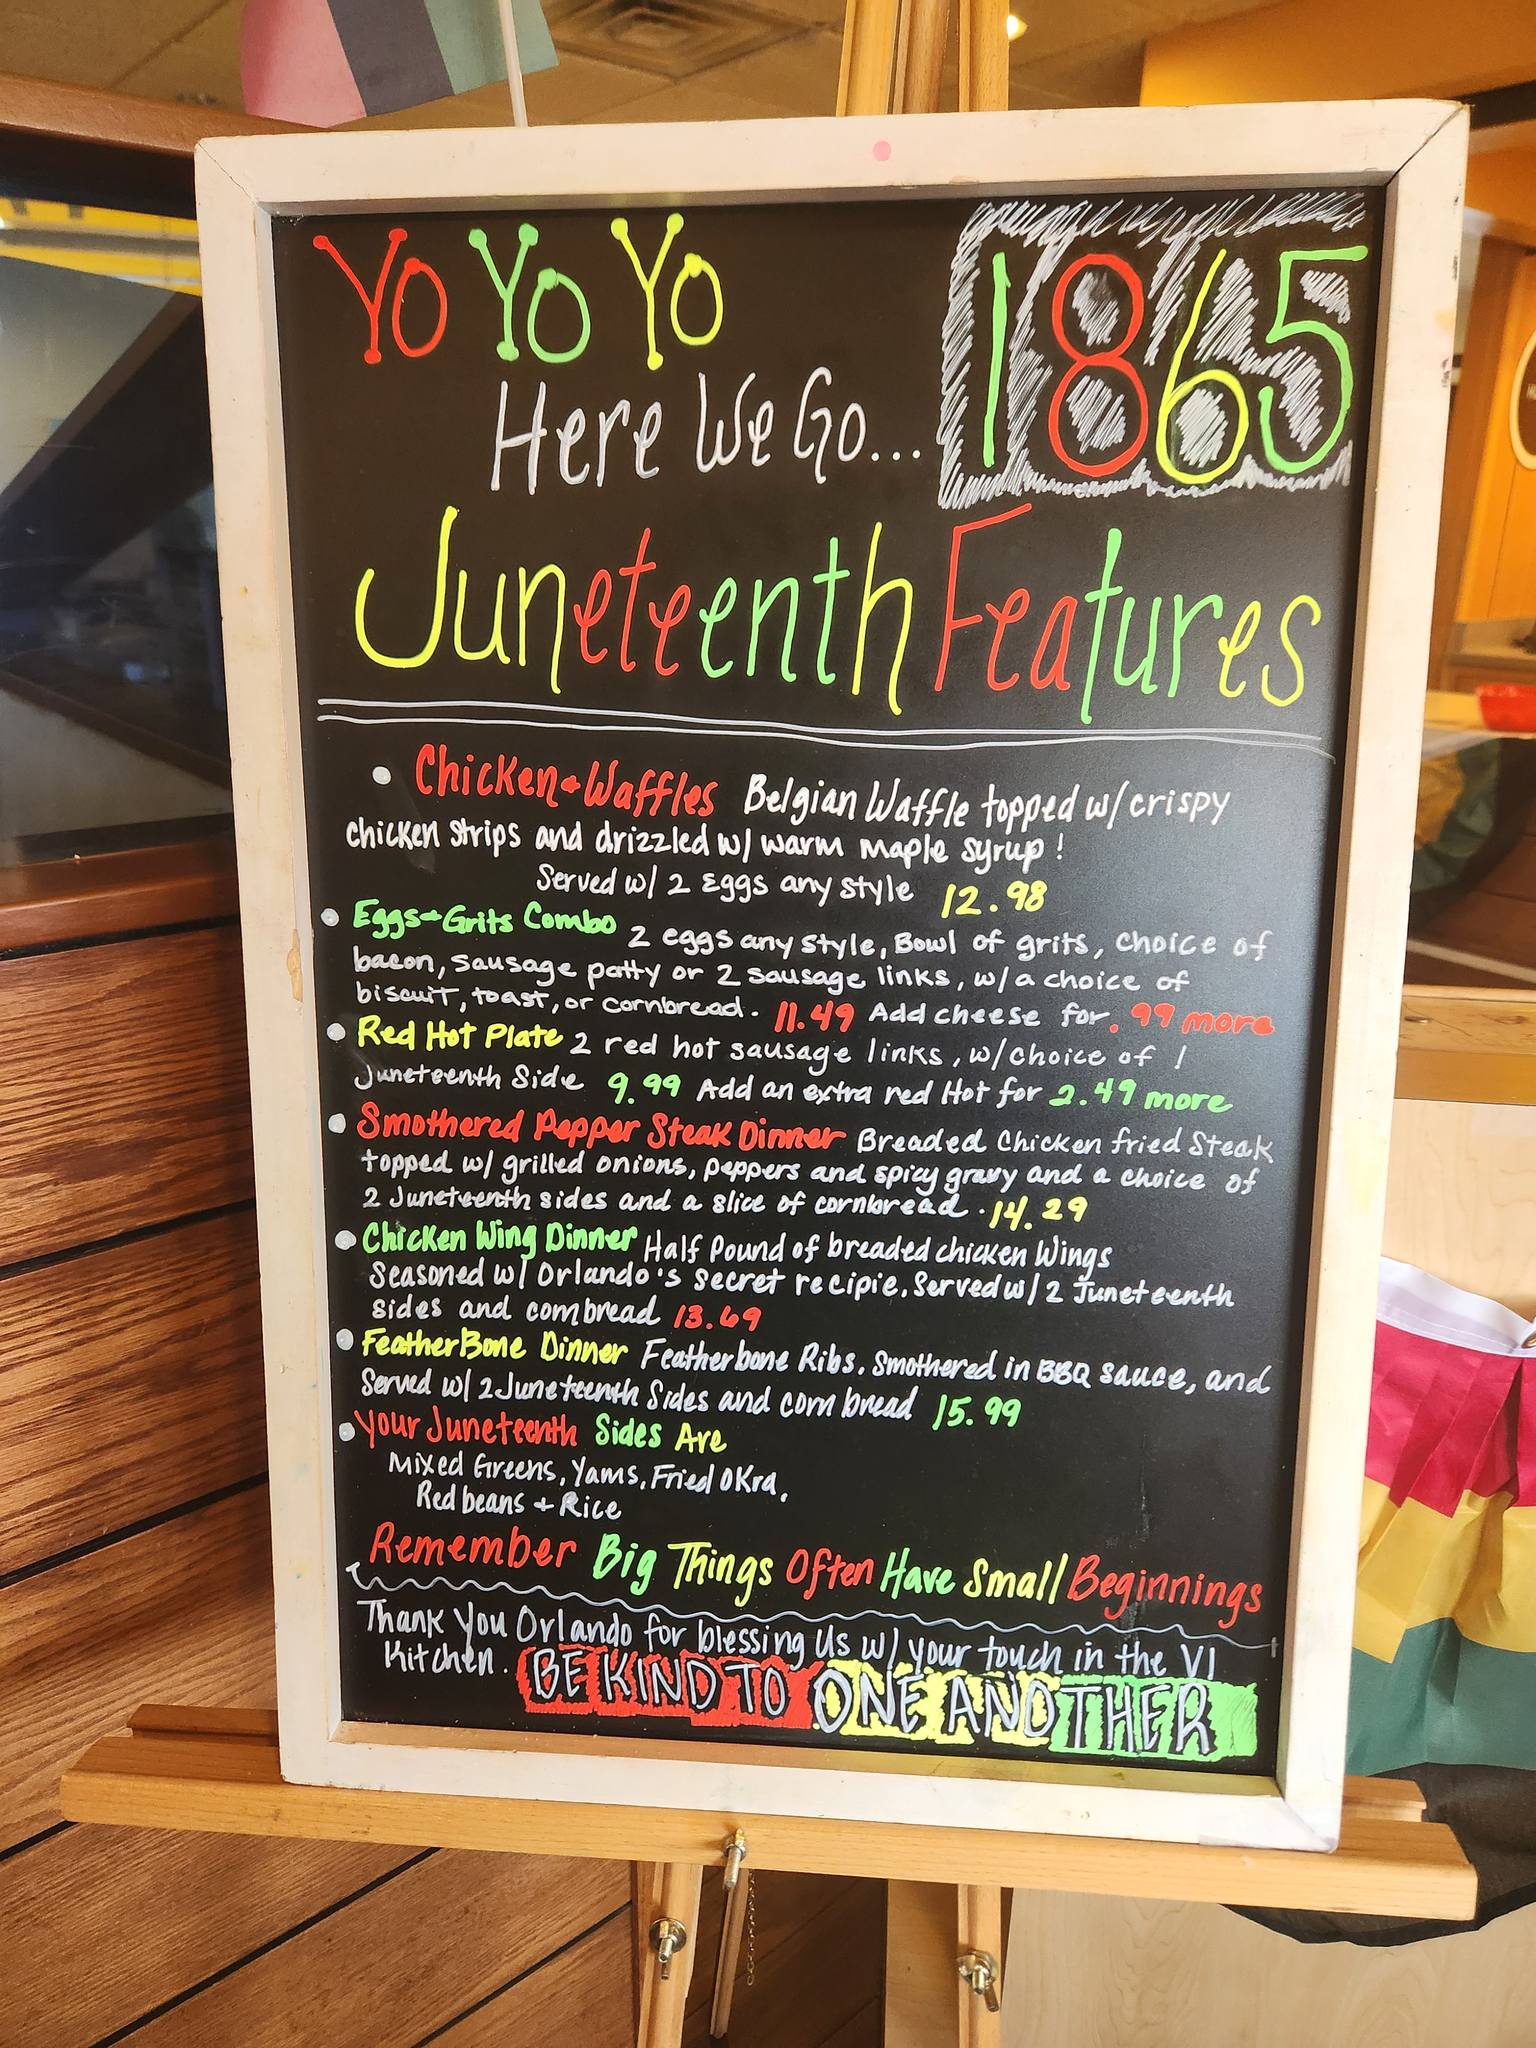 Yo Yo Yo 1865
Here We Go...
Juneteenth Features
• Chicken + Waffles Belgian Waffle topped w/ crispy
chicken strips and drizzled w/ warm maple syrup!
Served w/ 2 Eggs any style 12.98
• Eggs + Grits Combo 2 eggs any style, Bowl of grits, choice of
bacon, sausage patty or 2 sausage links, w/ a choice of
biscuit, toast, or cornbread. 11.49 Add cheese for .99 more
• Red Hot Plate 2 red hot sausage links, w/choice of 1
Juneteenth Side 9.99 Add an extra red Hot for 2.49 more
• Smothered Pepper Steak Dinner Breaded Chicken fried Steak
topped w/ grilled onions, peppers and spicy gravy and a choice of
2 Juneteenth sides and a slice of cornbread. 14.29
• Chicken Wing Dinner Half Pound of breaded chicken Wings
Seasoned w/ Orlando's secret recipie. Served w/ 2 Juneteenth
sides and cornbread 13.69
• FeatherBone Dinner Featherbone Ribs. Smothered in BBQ sauce, and
Served w/ 2 Juneteenth Sides and corn bread 15.99
• Your Juneteenth Sides Are
Mixed Greens, Yams, Fried OKra,
Red beans + Rice
Remember Big Things Often Have Small Beginnings
Thank You Orlando for blessing Us w/ your touch in the VI
Kitchen. BE KIND TO ONE ANOTHER